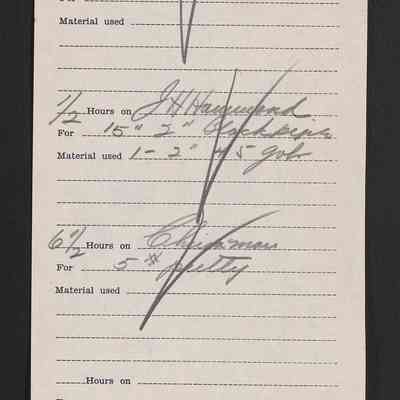 For
Material used
1/2 Hours on J H Hammond
For 15" 2" Black pipe
Material used 1 - 2" 45
6 1/2 Hours on Chinaman
For 5 # putty
Material used
Hours on